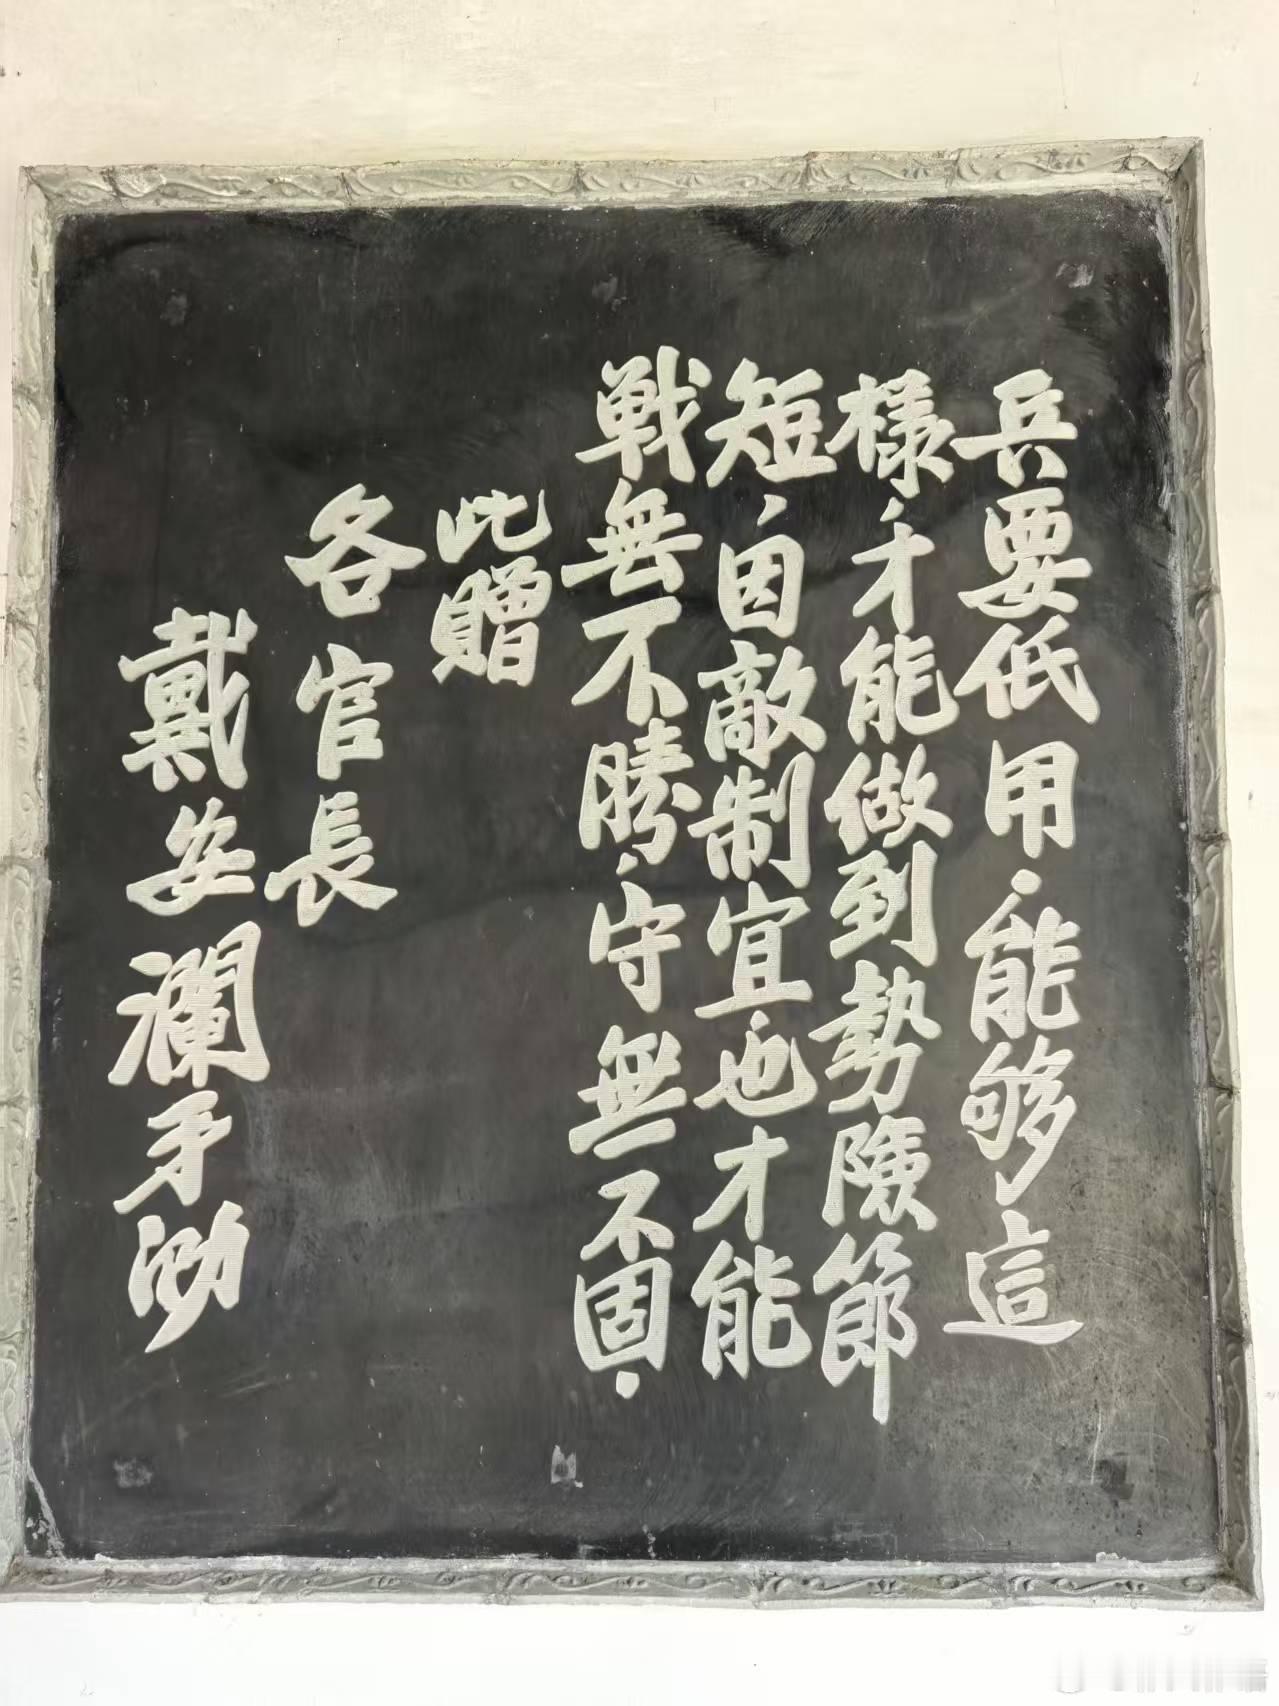 兵要低用、能够這
樣、才能做到勢險節
短、因敵制宜也才能
戰無不勝、守無不固、
此贈
各官長
戴安瀾手泐